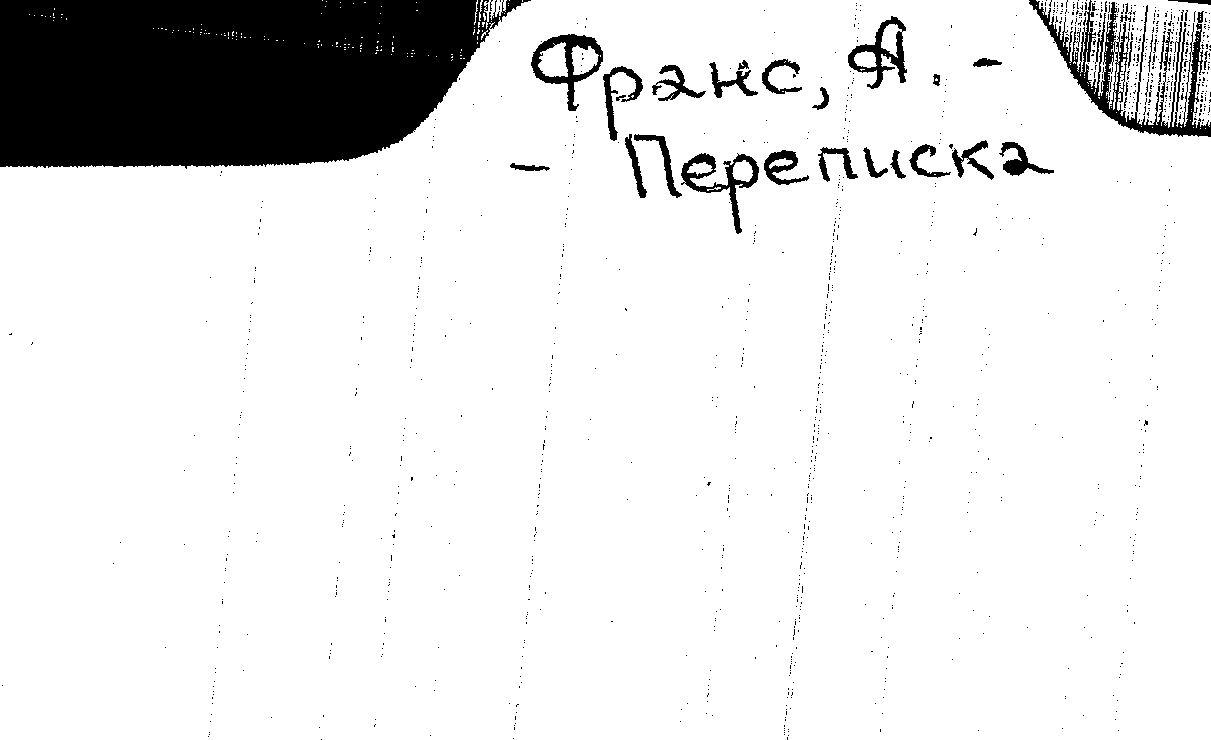 Франс, А. -
- Переписка